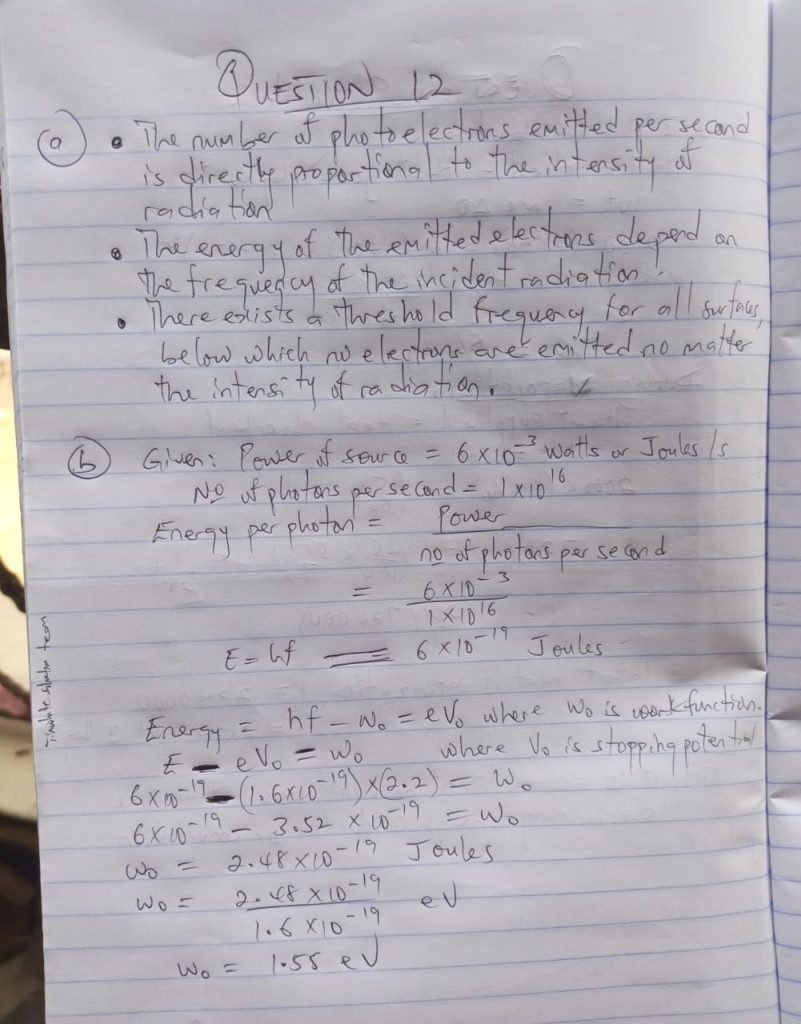 QUESTION 12
(a) • The number of photoelectrons emitted per second
is directly proportional to the intensity of
radiation
• The energy of the emitted electrons depend on
the frequency of the incident radiation.
• There exists a threshold frequency for all surfaces,
below which no electrons are emitted no matter
the intensity of radiation.
(b) Given: Power of source = 6 x 10⁻³ Watts or Joules/s
No of photons per second = 1 x 10¹⁶
Energy per photon = Power
no of photons per second
= 6 x 10⁻³
1 x 10¹⁶
E = hf = 6 x 10⁻¹⁹ Joules
Energy = hf - W₀ = eV₀ where W₀ is work function.
E - eV₀ = W₀ where V₀ is stopping potential
6 x 10⁻¹⁹ - (1.6 x 10⁻¹⁹) x (2.2) = W₀
6 x 10⁻¹⁹ - 3.52 x 10⁻¹⁹ = W₀
W₀ = 2.48 x 10⁻¹⁹ Joules
W₀ = 2.48 x 10⁻¹⁹ eV
1.6 x 10⁻¹⁹
W₀ = 1.55 eV